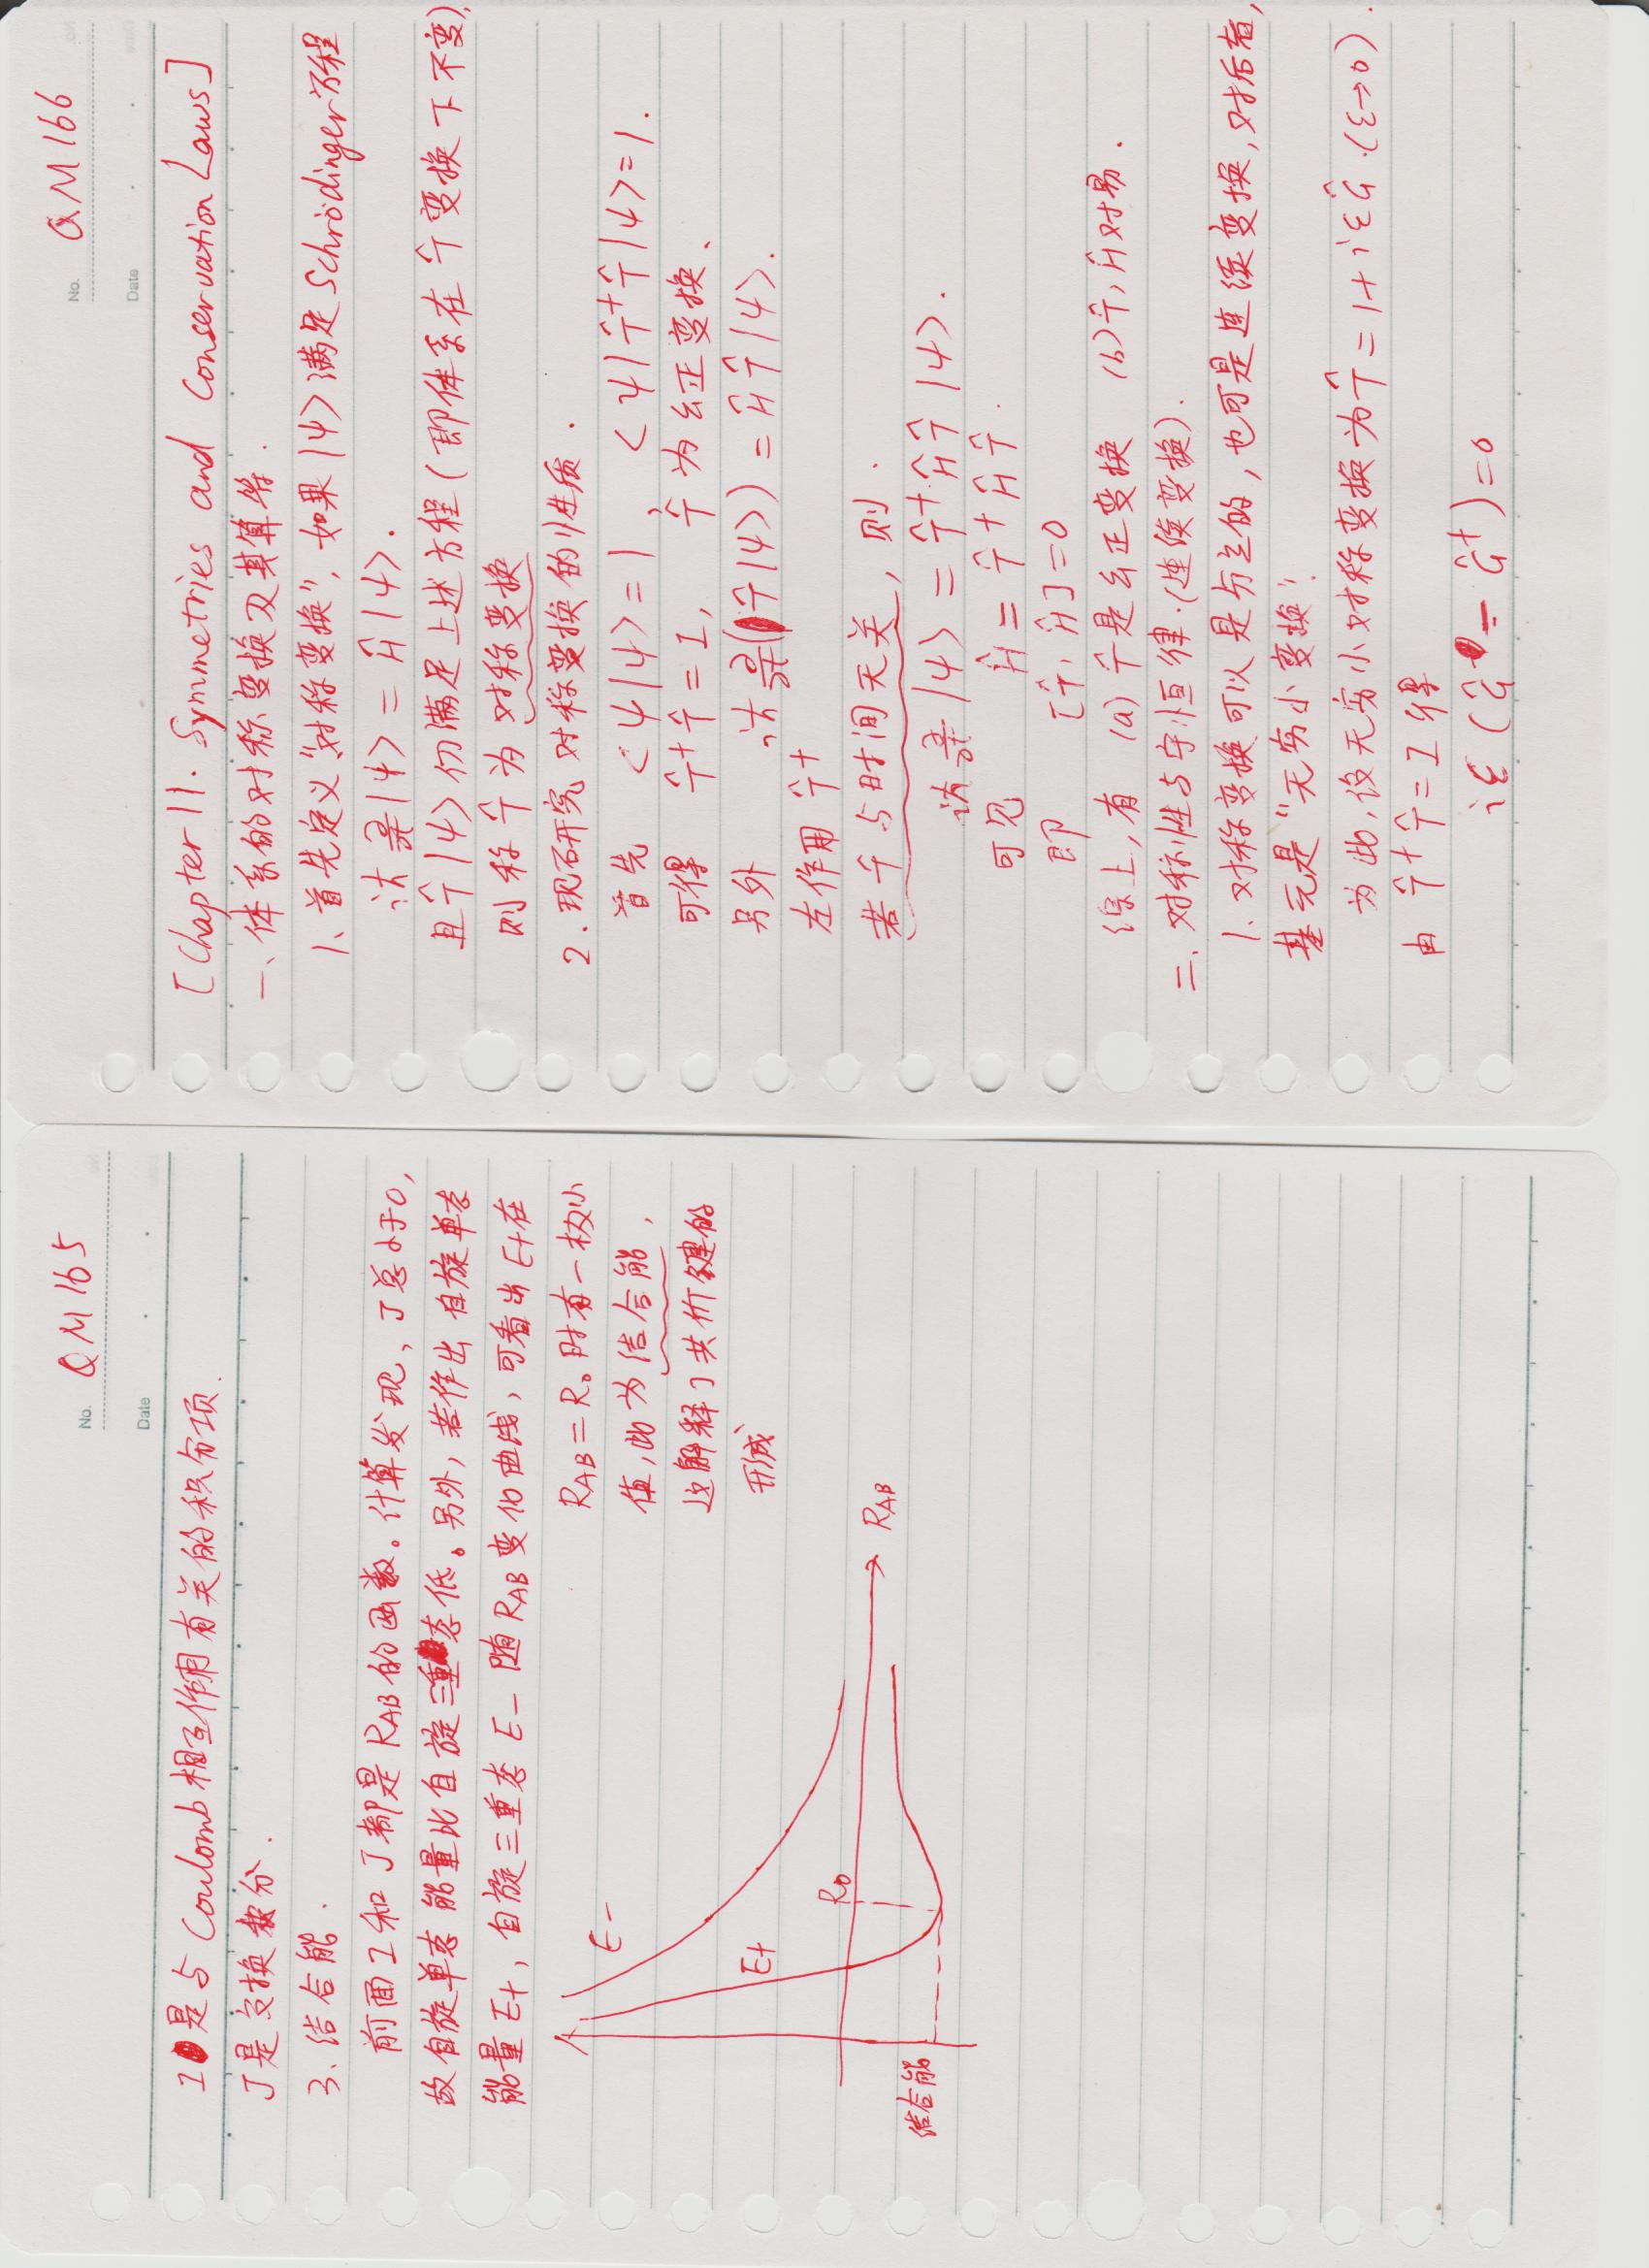 No. QM165
Date
I是与Coulomb相互作用有关的积分项.
J是交换积分.
3、结合能.
前面I和J都是R_AB的函数。计算发现、J总小于0,
故自旋单态能量比自旋三重态低。另外,若作出自旋单态
能量E+,自旋三重态E-随R_AB变化曲线,可看出E+在
R_AB=R₀时有一极小
值,此为结合能,
这解释了共价键的
形成
E-
E+
R₀
R_AB
结合能
No. QM166
Date
[Chapter 11. Symmetries and Conservation Laws]
一、体系的对称变换及其算符.
1、首先定义"对称变换",如果|ψ>满足Schrödinger方程
iħ ∂/∂t|ψ> = Ĥ|ψ>.
且T̂|ψ>仍满足上述方程(即体系在T̂变换下不变),
则称T̂为对称变换
2.现研究对称变换的性质.
首先 <ψ|ψ>=1, <ψ|T̂⁺T̂|ψ>=1.
可得 T̂⁺T̂=I, T̂为幺正变换、
另外 iħ ∂/∂t(T̂|ψ>) = ĤT̂|ψ>.
左作用T̂⁺
若T̂与时间无关,则.
iħ ∂/∂t |ψ> = T̂⁺ĤT̂|ψ>.
可见 Ĥ = T̂⁺ĤT̂.
即 [T̂,Ĥ]=0
综上,有 (a) T̂是幺正变换 (b) T̂,Ĥ对易.
二、对称性与守恒律.(连续变换).
1、对称变换可以是分立的,也可是连续变换,对后者,
基元是"无穷小变换".
为此,设无穷小对称变换为T̂=1+iεĜ.(ε→0).
由 T̂⁺T̂=I 得
iε(Ĝ - Ĝ⁺)=0